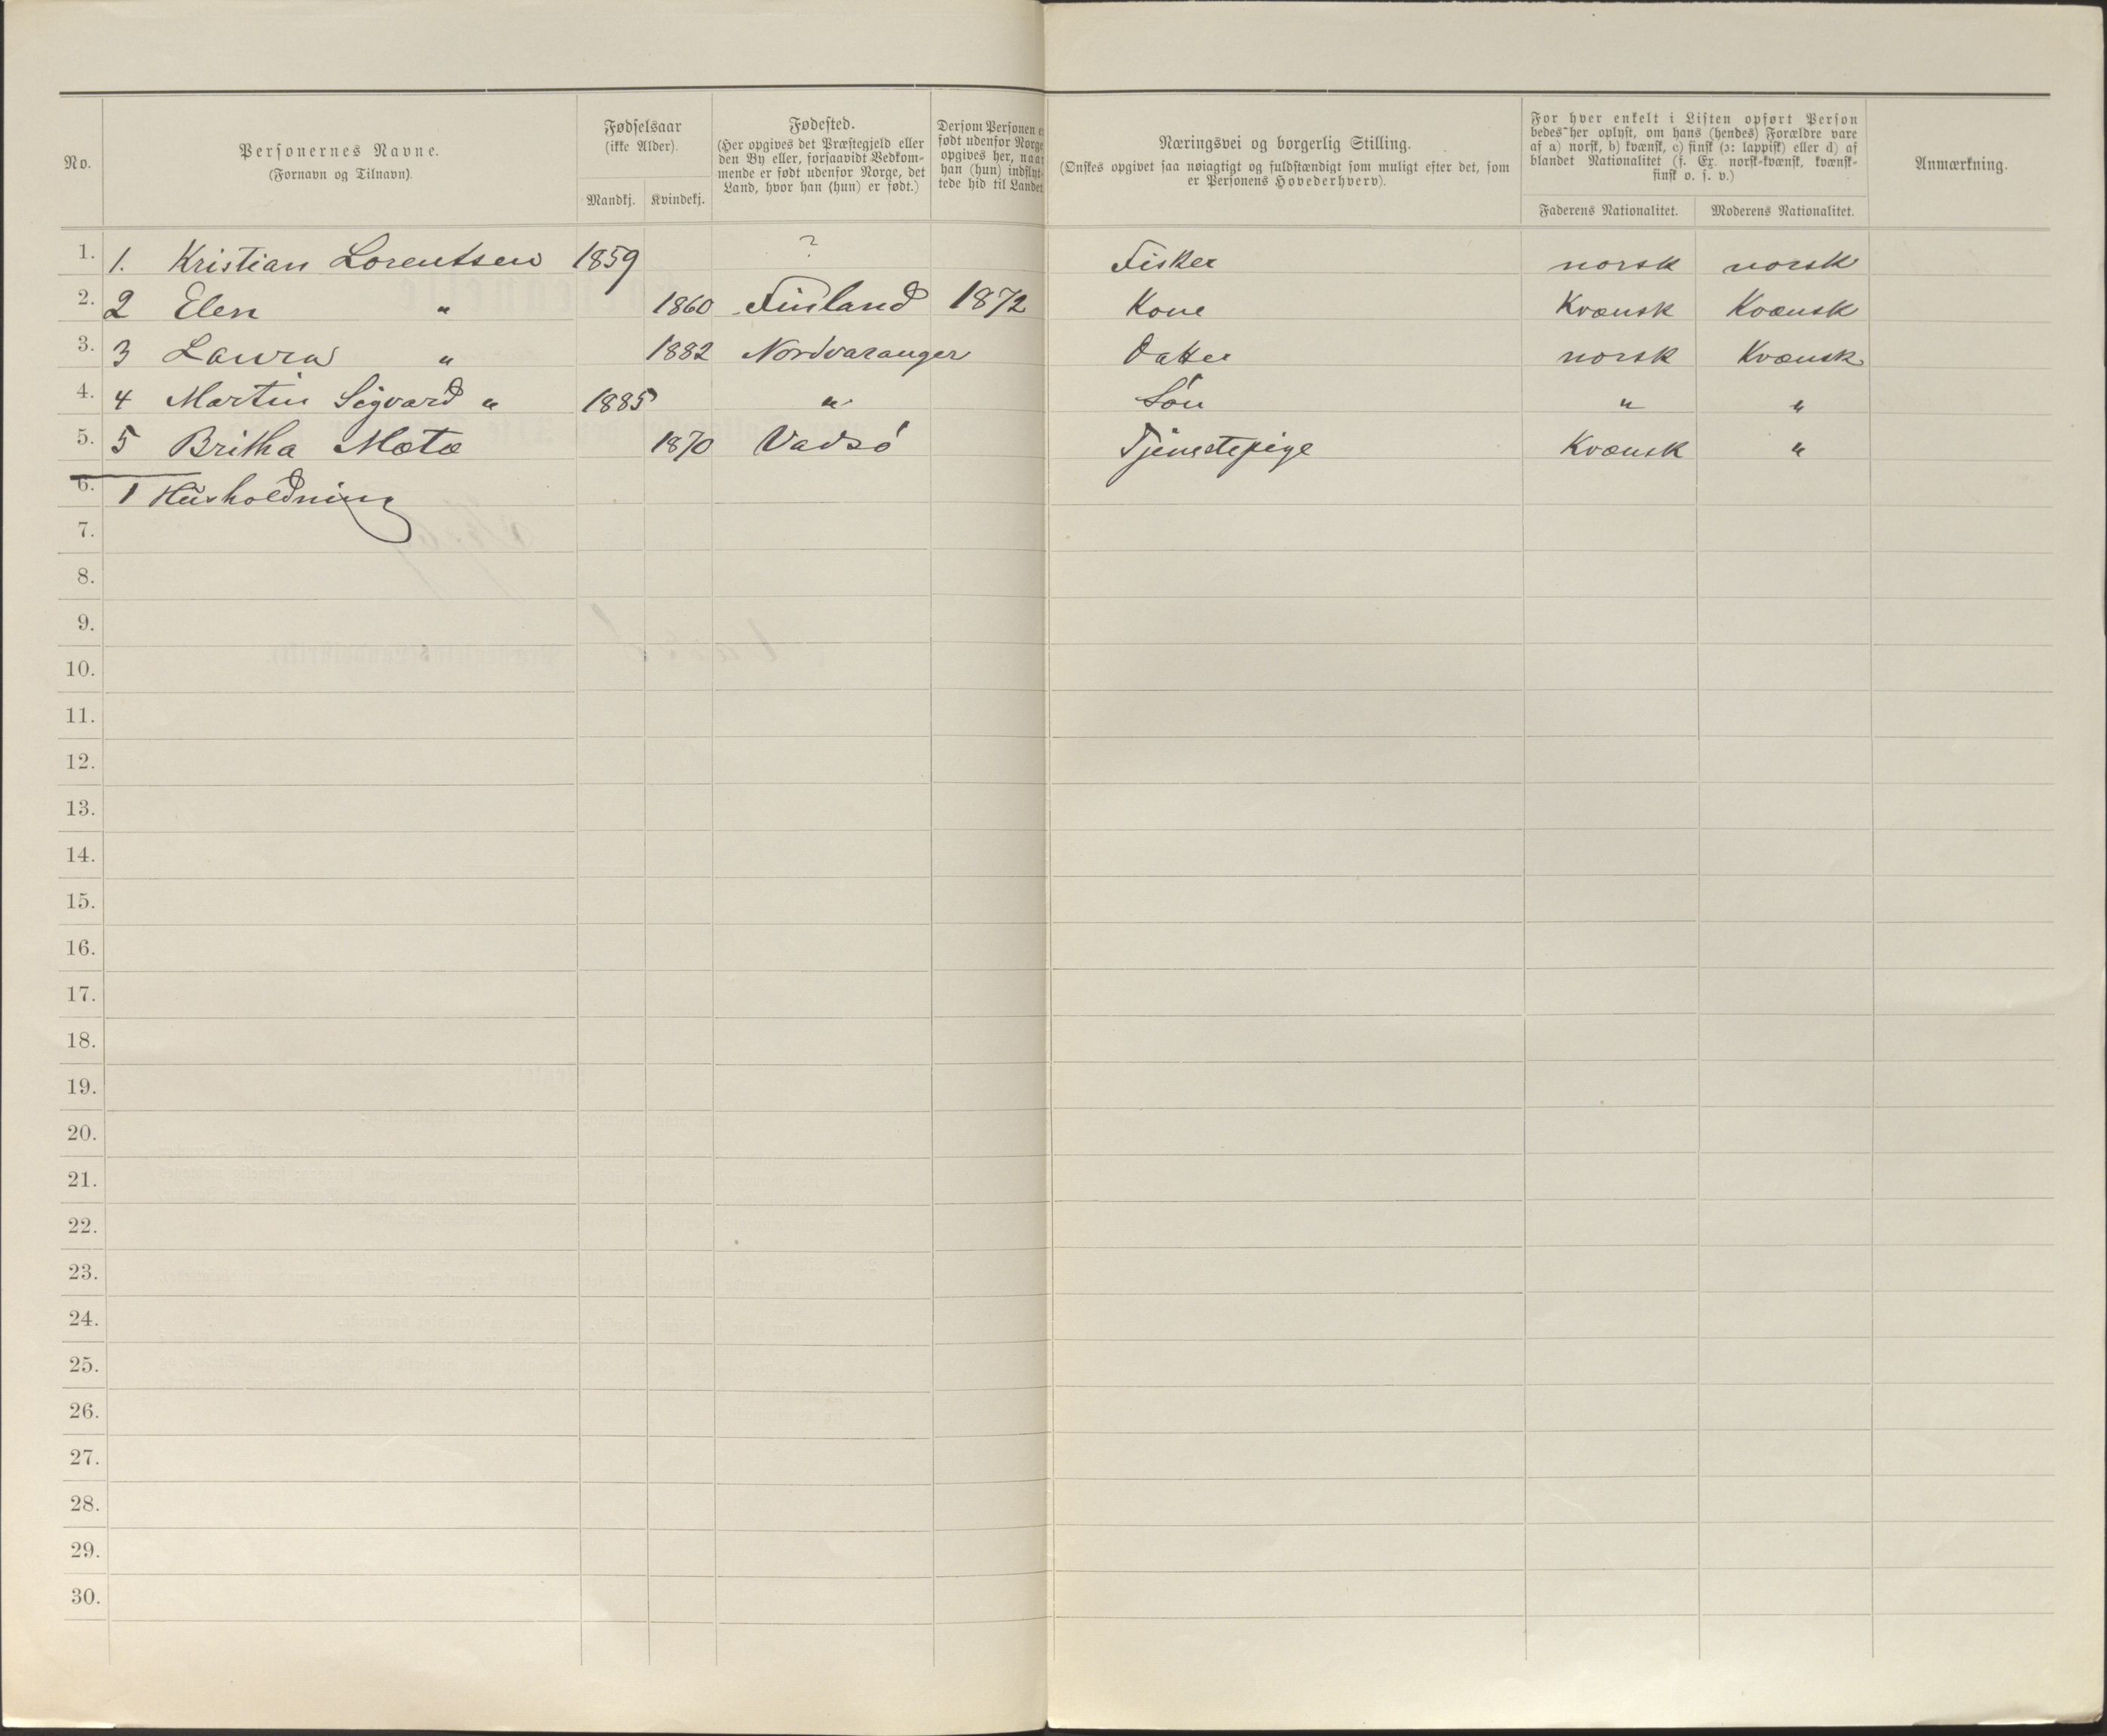 No.
Personernes Navne.
(Fornavn og Tilnavn).
Fødselsaar
(ikke Alder).
Mandkj. Kvindekj.
Fødested.
(Her opgives det Præstegjeld eller
den By eller, forsaavidt Vedkom-
mende er født udenfor Norge, det
Land, hvor han (hun) er født.)
Dersom Personen e
født udenfor Norge
opgives her, naar
han (hun) indflyt-
tede hid til Landet
Næringsvei og borgerlig Stilling.
(Ønskes opgivet saa nøiagtigt og fuldstændigt som muligt efter det, som
er Personens Hovederhverv).
For hver enkelt i Listen opført Person
bedes her oplyst, om hans (hendes) Forældre vare
af a) norsk, b) kvænsk, c) finsk (ɔ: lappisk) eller d) af
blandet Nationalitet (f. Ex. norsk-kvænsk, kvænsk-
finsk o. s. v.)
Faderens Nationalitet. Moderens Nationalitet.
Anmærkning.
1. 1. Kristian Lorentsen 1859 ? Fisker norsk norsk
2. 2 Elen " 1860 Finland 1872 Kone Kvænsk Kvænsk
3. 3 Laura " 1882 Nordvaranger Datter norsk Kvænsk
4. 4 Martin Sigvard " 1885 " Søn " "
5. 5 Britha Mætæ 1870 Vadsø Tjenestepige Kvænsk "
6. 1 Husholdning
7.
8.
9.
10.
11.
12.
13.
14.
15.
16.
17.
18.
19.
20.
21.
22.
23.
24.
25.
26.
27.
28.
29.
30.